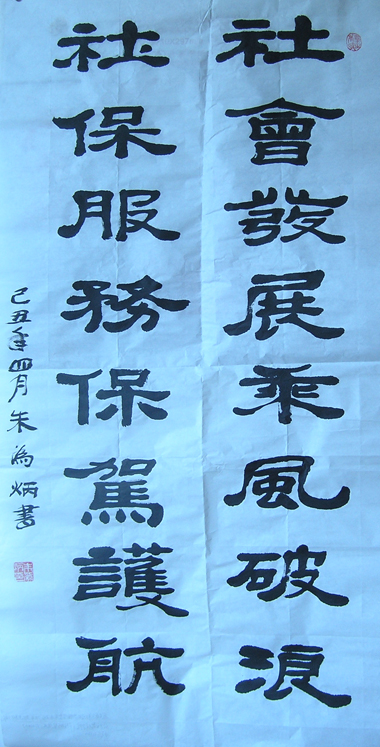 社會發展乘風破浪
社保服務保駕護航
己丑年四月朱為炳書